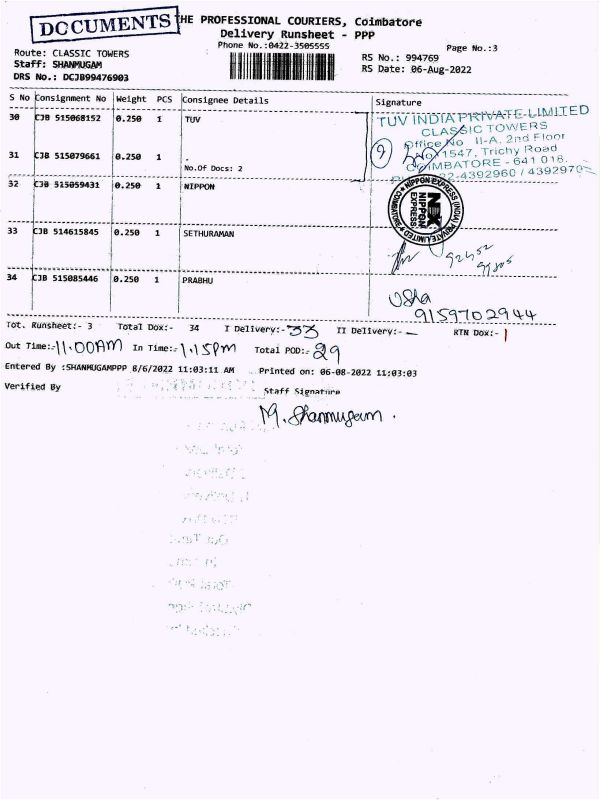 DOCUMENTS
THE PROFESSIONAL COURIERS, Coimbatore
Delivery Runsheet - PPP
Phone No.:0422-3505555
Page No.:3
Route: CLASSIC TOWERS
Staff: SHANMUGAM
DRS No.: DCJB99476903
RS No.: 994769
RS Date: 06-Aug-2022
S No Consignment No Weight PCS Consignee Details Signature
30 CJB 515068152 0.250 1 TUV
TUV INDIA PRIVATE LIMITED
CLASSIC TOWERS
Office No II-A, 2nd Floor
1547, Trichy Road
COIMBATORE - 641 018.
4392960 / 4392970
31 CJB 515079661 0.250 1 .
No.Of Docs: 2
32 CJB 515059431 0.250 1 NIPPON
NIPPON EXPRESS (INDIA) PRIVATE LIMITED
COIMBATORE
NX
NIPPON
EXPRESS
33 CJB 514615845 0.250 1 SETHURAMAN
34 CJB 515085446 0.250 1 PRABHU
Usha
9159702944
Tot. Runsheet:- 3 Total Dox:- 34 I Delivery:- 33 II Delivery:- - RTN Dox:- 1
Out Time:- 11.00AM In Time:- 1.15PM Total POD:- 29
Entered By :SHANMUGAMPPP 8/6/2022 11:03:11 AM Printed on: 06-08-2022 11:03:03
Verified By
Staff Signature
M. Shanmugam.